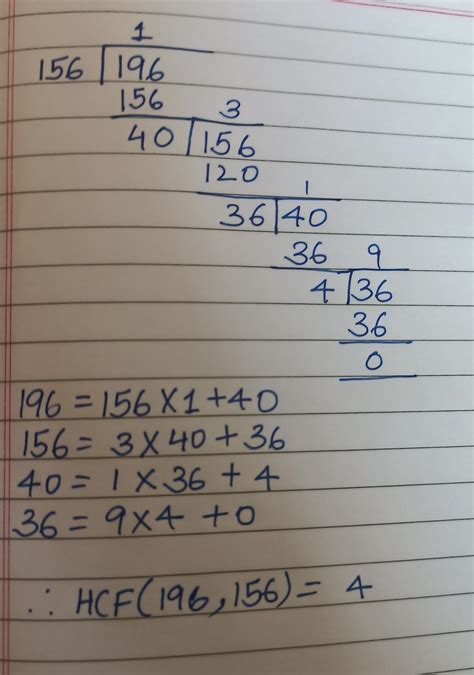 1
156 196
156 3
40 156
120 1
36 40
36 9
4 36
36
0
196 = 156 X 1 + 40
156 = 3 X 40 + 36
40 = 1 X 36 + 4
36 = 9 X 4 + 0
∴ HCF(196,156) = 4